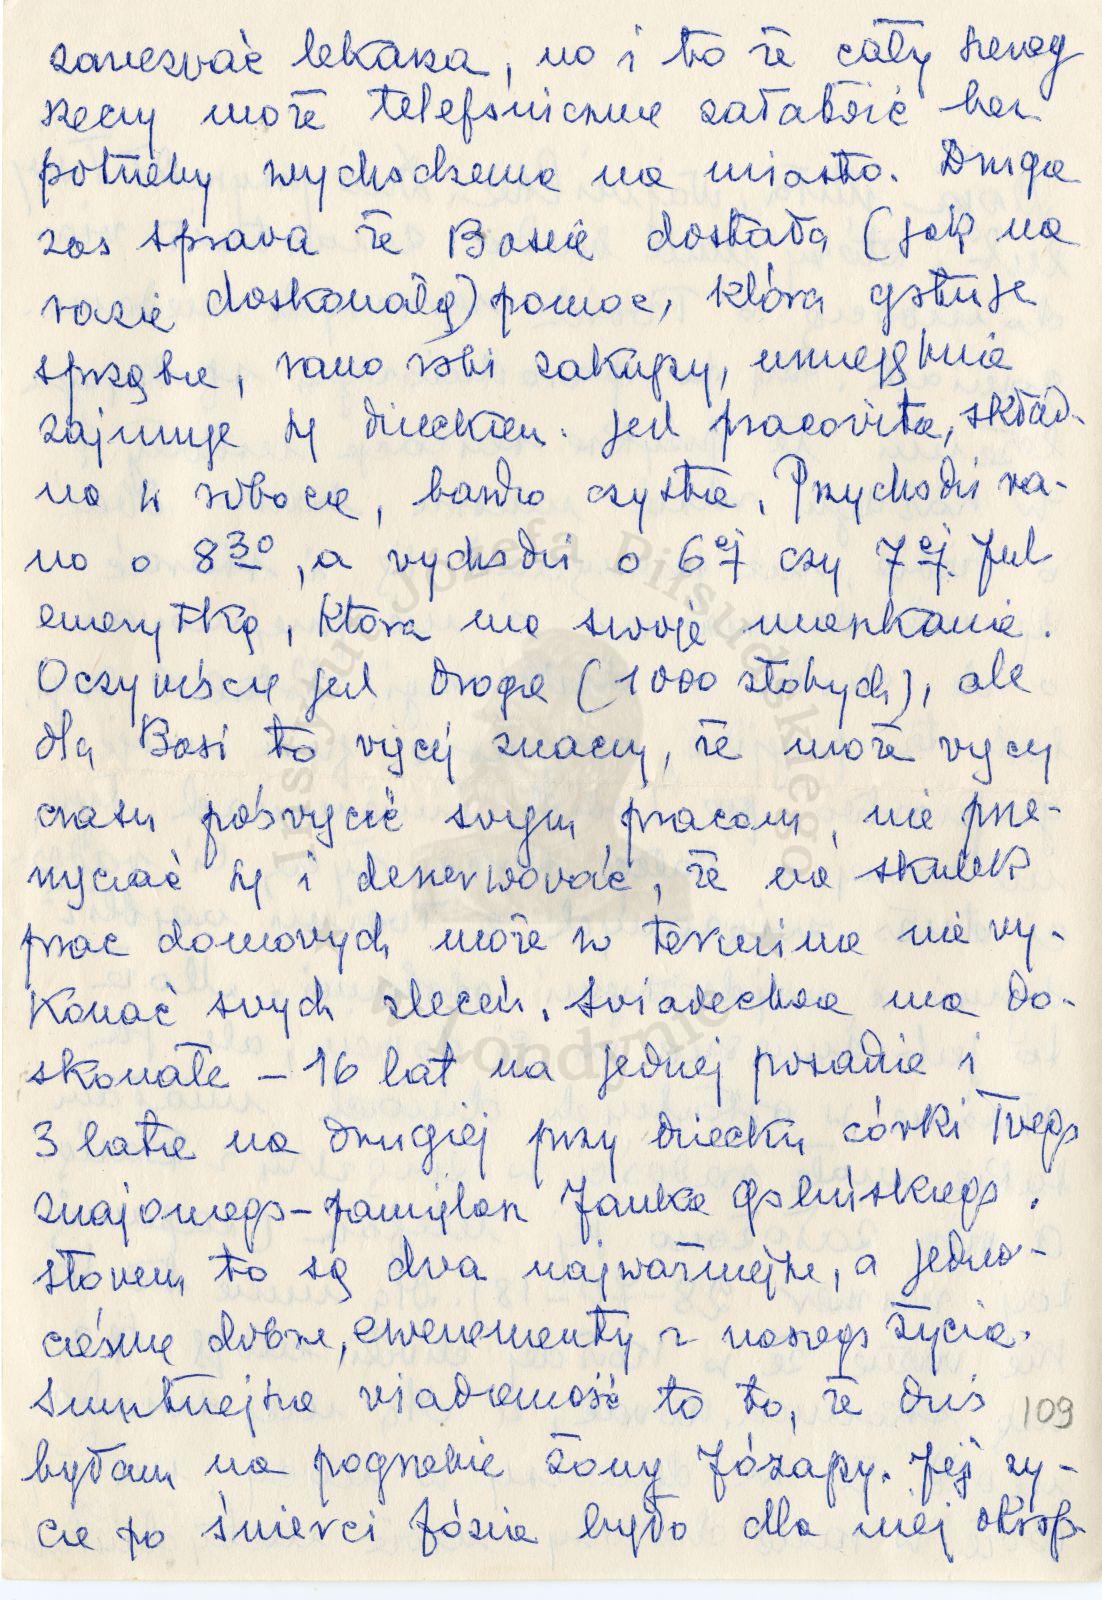 zawezwać lekarza, no i to że cały szereg
rzeczy może telefonicznie załatwić bez
potrzeby wychodzenia na miasto. Druga
zaś sprawa że Basia dostała (jak na
razie doskonałą) pomoc, która gotuje
sprząta, rano robi zakupy, umiejętnie
zajmuje się dzieckiem. Jest pracowita, skład-
na w robocie, bardzo czysta. Przychodzi ra-
no o 8³⁰, a wychodzi o 6ej czy 7ej. Jest
emerytką, która ma swoje mieszkanie.
Oczywiście jest droga (1000 złotych), ale
dla Basi to więcej znaczy, że może więcej
czasu poświęcić swym pracom, nie prze-
męczać się i denerwować, że na skutek
prac domowych może w terminie nie wy-
konać swych zleceń. Świadectwa ma do-
skonałe – 16 lat na jednej posadzie i
3 lata na drugiej przy dziecku córki Twego
znajomego – Janka
Słowem to są dwa najważniejsze, a jedno-
cześnie dobre, ewenementy z naszego życia.
Smutniejsza wiadomość to to, że dziś
byłam na pogrzebie żony Józapy. Jej ży-
cie po śmierci Józia było dla niej okrop-
109
Instytut Józefa Piłsudskiego
w Londynie